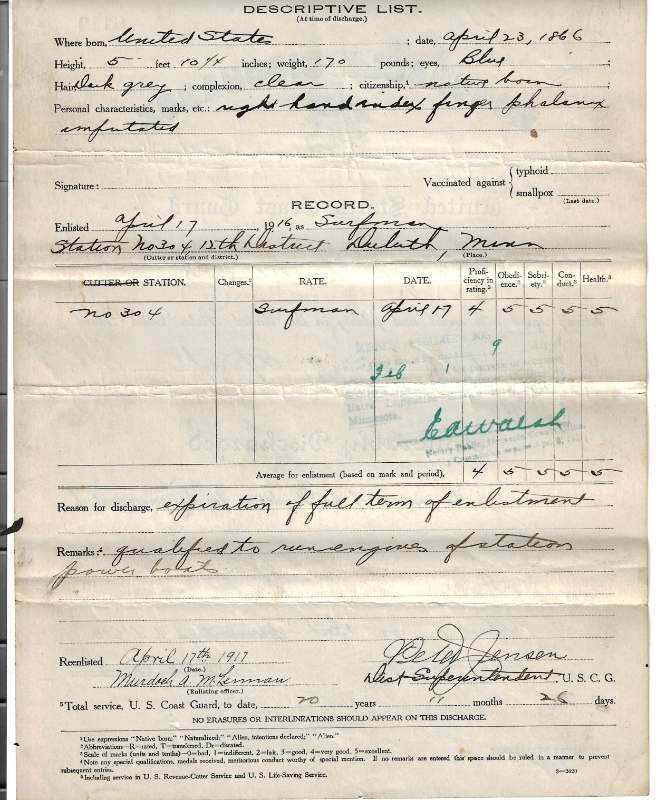 DESCRIPTIVE LIST.
(At time of discharge.)
Where born, United States ; date, April 23, 1866
Height, 5 feet 10 1/4 inches; weight, 170 pounds; eyes, Blue ;
Hair, Dark grey ; complexion, clear ; citizenship,¹ native born ;
Personal characteristics, marks, etc.: right hand index finger phalanx
amputated
Signature:
Vaccinated against { typhoid
smallpox
(Last date.)
RECORD.
Enlisted April 17, 1916, as Surfman
Station No 304, 12th District Duluth, Minn
(Cutter or station and district.) (Place.)
CUTTER OR STATION. Changes.² RATE. DATE. Profi- ciency in rating.³ Obedi- ence.³ Sobri- ety.³ Con- duct.³ Health.³
No 304 Surfman April 17 4 5 5 5 5
Feb 1 9
Minnesota.
E A Walsh
Notary Public,
Average for enlistment (based on mark and period), 4 5 5 5 5
Reason for discharge, expiration of full term of enlistment
Remarks:⁴ qualified to run engines of station
power boats
Reenlisted April 17th 1917
(Date.)
Jensen
Murdoch A. McLennan
(Enlisting officer.)
Dist Superintendent U. S. C. G.
⁵Total service, U. S. Coast Guard, to date, 20 years 11 months 26 days.
NO ERASURES OR INTERLINEATIONS SHOULD APPEAR ON THIS DISCHARGE.
¹ Use expressions "Native born;" "Naturalized;" "Alien, intentions declared;" "Alien."
² Abbreviations—R=rated, T=transferred, Dr=disrated.
³ Scale of marks (units and tenths)—0=bad, 1=indifferent, 2=fair, 3=good, 4=very good, 5=excellent.
⁴ Note any special qualifications, medals received, meritorious conduct worthy of special mention. If no remarks are entered this space should be ruled in a manner to prevent
subsequent entries.
⁵ Including service in U. S. Revenue-Cutter Service and U. S. Life-Saving Service.